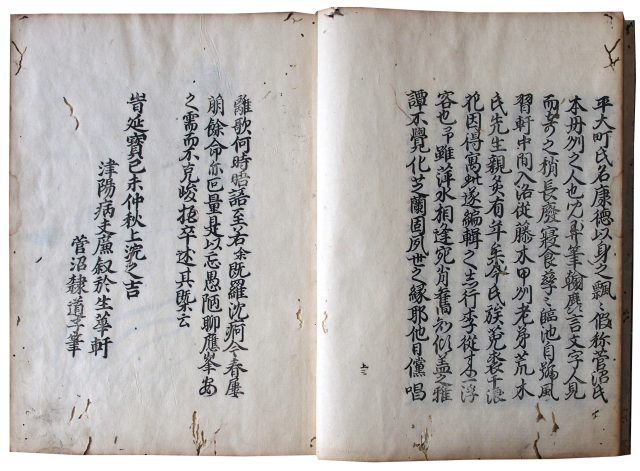 平大町氏名康德以身之飄〻假称菅沼氏
本丹州之人也弄筆翰言文字人見
而奇之稍長廢寢食孳〻臨池自號風
習軒中間入洛從藤木甲州老弟荒木
氏先生親炙有年矣今氏族浪
花因得寓此遂編輯之志行李從來浮
客也予雖萍水相逢宛肖舊知傾盖之雅
譚不覺化芝蘭固夙世之縁耶他日儻唱
十二
離歌何時晤語至若余既羅沈痾今春屢
餘命亦叵量是以忘愚陋聊應峯
之需而不克峻拒卒述其槩云
旹延寶己未仲秋上浣之吉
津陽病夫叙於生華軒
菅沼隸道子筆